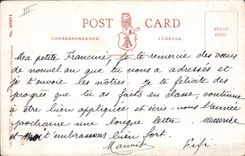 III
POST CARD
CORRESPONDENCE.
ADDRESS.
Ma petite Francine, Je te remercie des vœux
de nouvel an que tu nous a adressés et
je t'envoie les nôtres. Je te félicite des
progrès que tu as faits en classe, continue
à être bien appliquée et écris nous l'année
prochaine une longue lettre.
et embrassons bien fort.